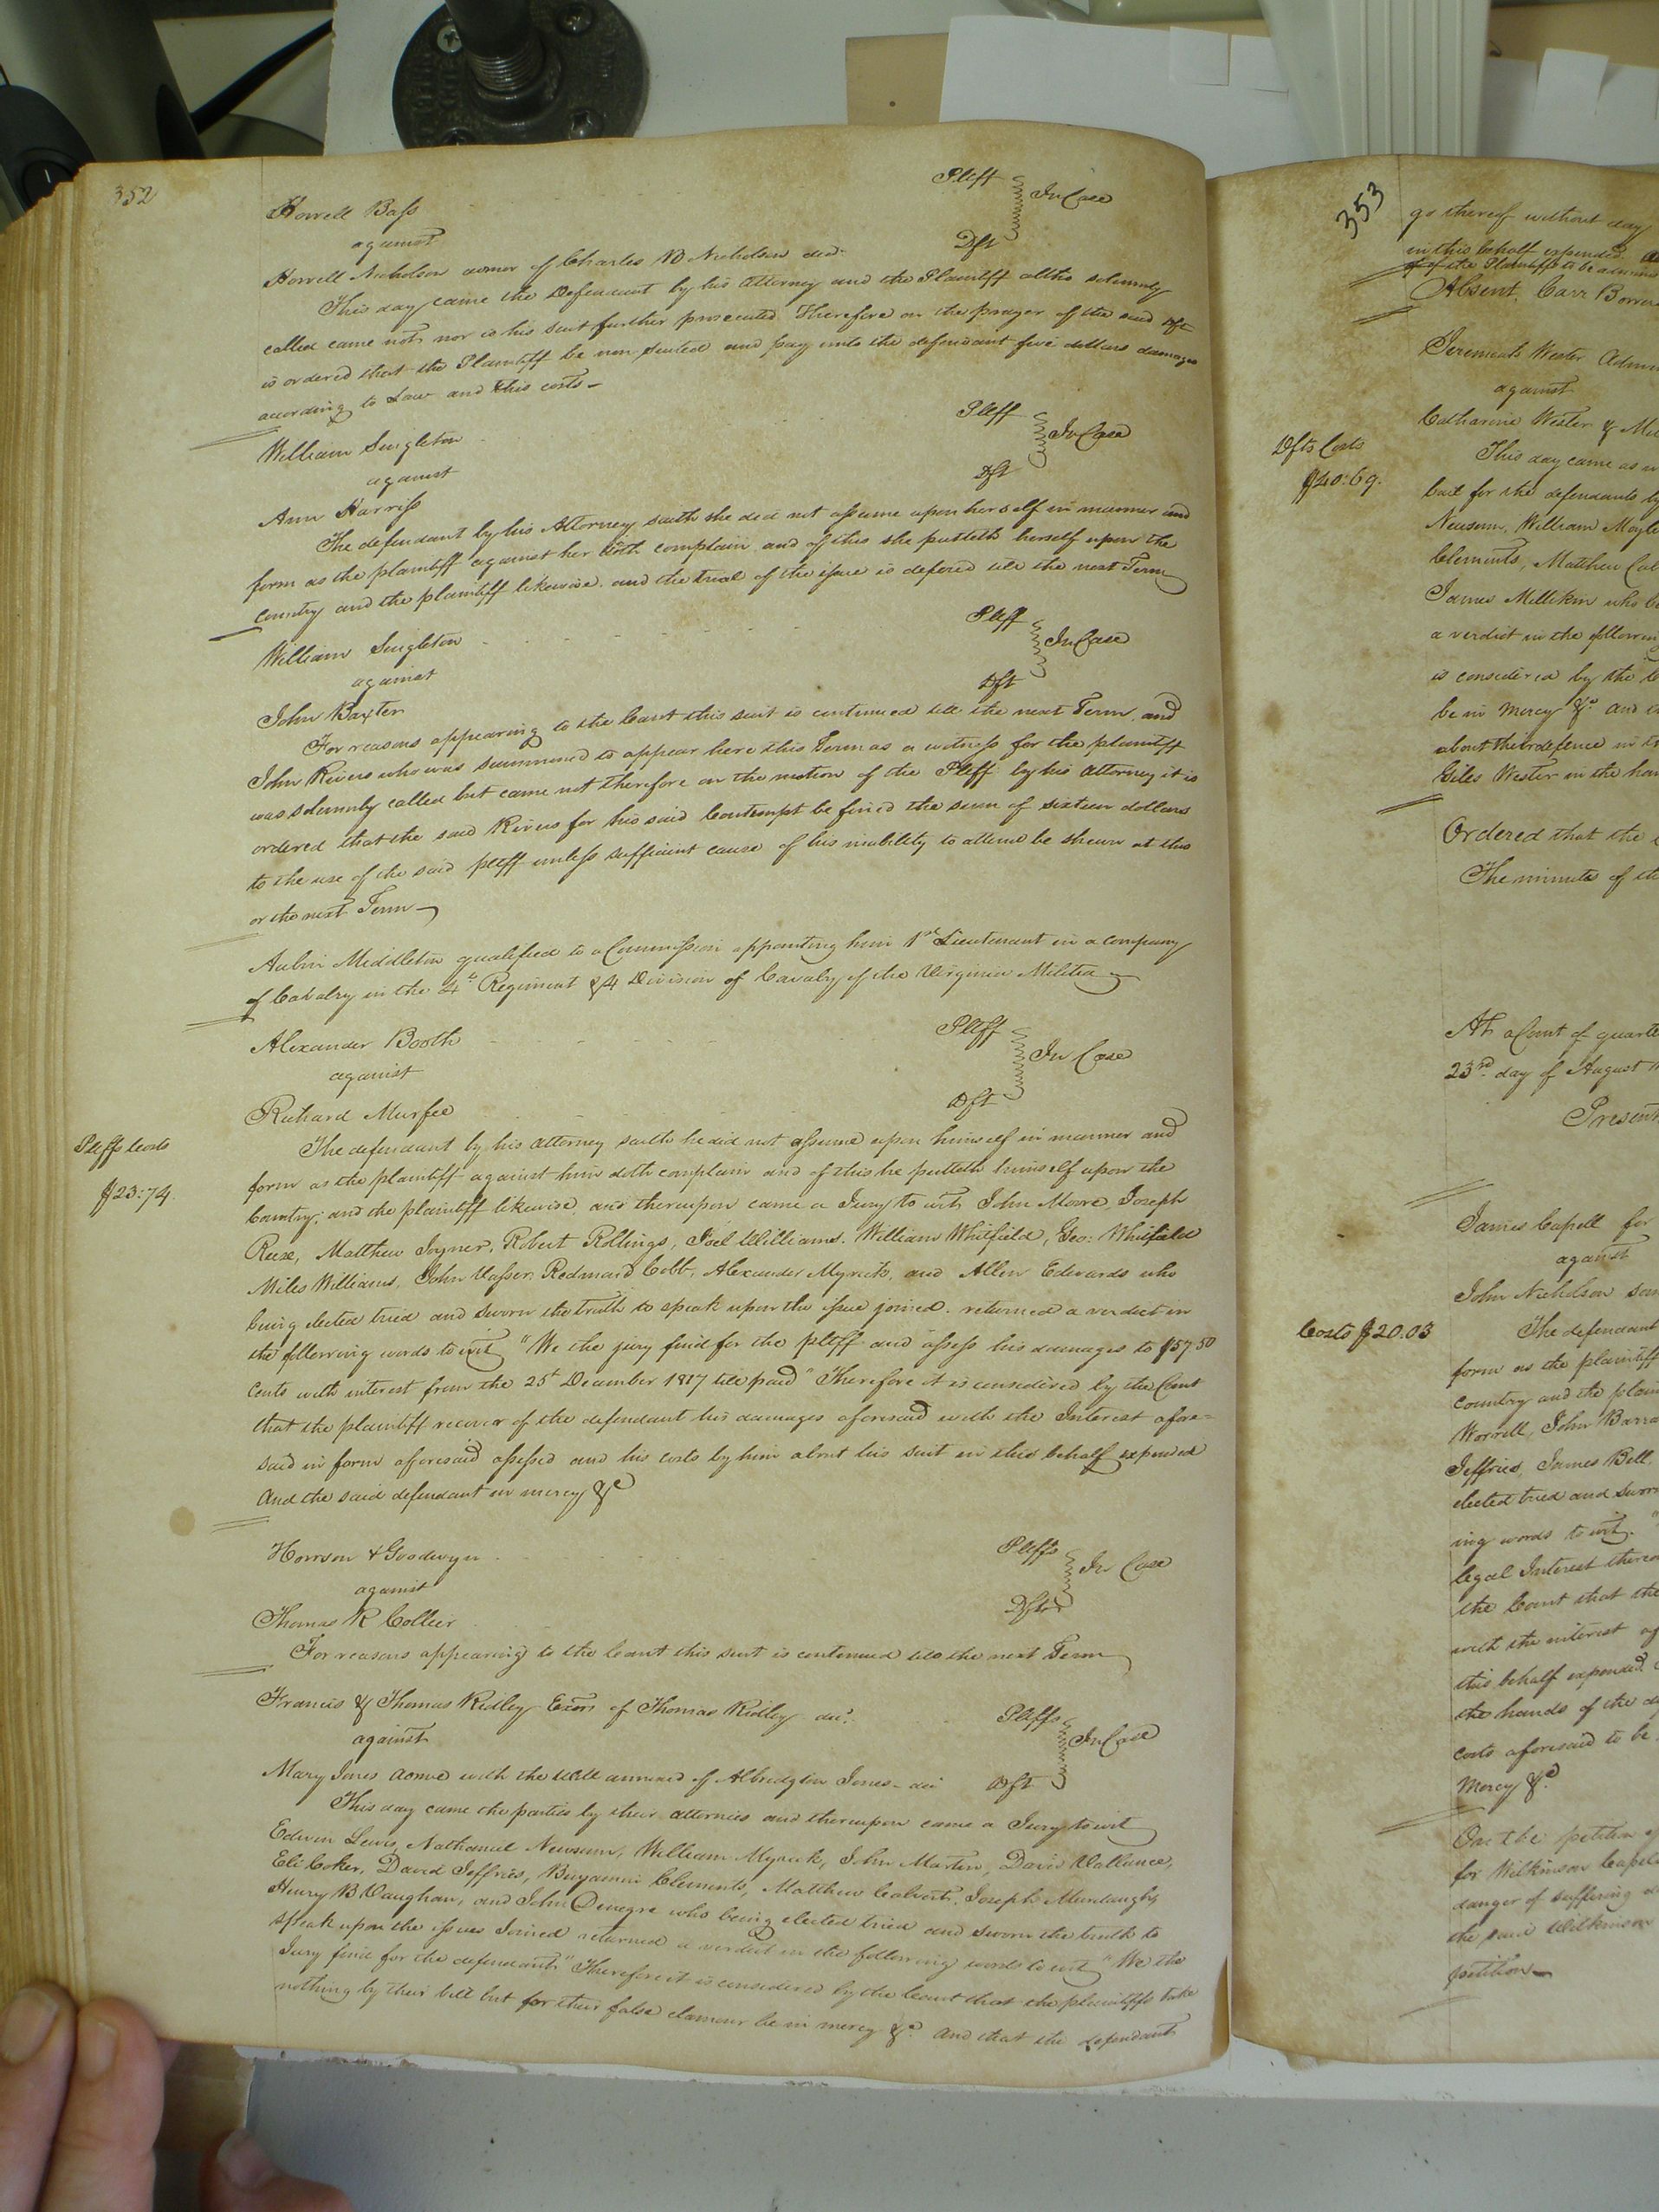 352
Howell Bass Pltff
against In Case
Howell Nicholson admor of Charles B Nicholson decd. Dft
This day came the Defendant by his attorney and the Plaintiff altho solemnly
called came not nor is his suit further prosecuted Therefore on the prayer of the said Dft
is ordered that the Plaintiff be non suited and pay unto the defendant five dollars damages
according to Law and his costs -
William Singleton Pltff
against In Case
Ann Harriss Dft
The defendant by his Attorney saith she did not assume upon herself in manner and
form as the plaintiff against her doth complain and of this she putteth herself upon the
Country and the plaintiff likewise. and the trial of the issue is defered till the next Term
William Singleton Pltff
against In Case
John Baxter Dft
For reasons appearing to the Court this suit is continued till the next Term, and
John Rivers who was summoned to appear here this Term as a witness for the plaintiff
was solemnly called but came not therefore on the motion of the Pltff by his attorney it is
ordered that the said Rivers for his said Contempt be fined the sum of sixteen dollars
to the use of the said pltff unless sufficient cause of his inability to attend be shewn at this
or the next Term
Aubin Middleton qualified to a Commission appointing him 1st Lieutenant in a company
of Cavalry in the 4th Regiment & 4 Division of Cavalry of the Virginia Militia
Alexander Booth Pltff
against In Case
Richard Murfee Dft
Pltffs Costs
$23:74.
The defendant by his attorney saith he did not assume upon himself in manner and
form as the plaintiff against him doth complain and of this he putteth himself upon the
Country; and the plaintiff likewise. and thereupon came a Jury to wit John Moore, Joseph
Reese, Matthew Joyner, Robert Rollings, Joel Williams. William Whitfield, Geo: Whitfield
Miles Williams, John Vasser. Redmand Cobb, Alexander Myrick, and Allen Edwards who
being elected tried and sworn the truth to speak upon the issue joined. returned a verdict in
the following words to wit "We the jury find for the pltff and assess his damages to $57.50
Cents with interest from the 25t December 1817 till paid" Therefore it is considered by the Court
that the plaintiff recover of the defendant his damages aforesaid with the Interest afore=
said in form aforesaid assessed and his costs by him about his suit in this behalf expended
And the said defendant in mercy &c
Harrison & Goodwyn Pltffs
against In Case
Thomas R Collier Dft
For reasons appearing to the Court this suit is continued till the next Term
Francis & Thomas Ridley Exors of Thomas Ridley decd. Pltffs
against In Case
Mary Jones admx with the Will annexed of Albridgton Jones - decd Dft
This day came the parties by their attornies and thereupon came a Jury to wit
Edwin Lewis, Nathaniel Newsum, William Myrick, John Martin, David Vallance,
Eli Coker, David Jeffries, Benjamin Clements, Matthew Calvert, Joseph Murdaugh,
Henry B Vaughan, and John Denegre who being elected tried and sworn the truth to
speak upon the issues Joined returned a verdict in the following words to wit "We the
Jury find for the defendant" Therefore it is considered by the Court that the plaintiffs take
nothing by their bill but for their false clamour be in mercy &c. and that the defendant
353
go thereof without day
in this behalf expended.
of the Plaintiffs to be
Absent. Carr
Jeremiah Wester
against
Catharine Wester &
Dfts Costs
$40:69.
This day came as
bail for the defendants by
Newsum, William
Clements, Matthew
James Millikin who
a verdict in the following
is considered by the
be in mercy &c. and
about their defence in
Giles Wester in the
Ordered that the
The minutes of
At a Court of
23rd day of August
Present
James Capell for
against
John Nicholson
Costs $20.03
The defendant
form as the plaintiff
Country and the
Worrell, John
Jeffries, James Bell,
elected tried and
ing words to wit.
legal Interest
the Court that the
with the interest
this behalf expended
the hands of the
costs aforesaid to be
Mercy &c.
On the petition
for Wilkinson
danger of suffering
the said Wilkinson
petition